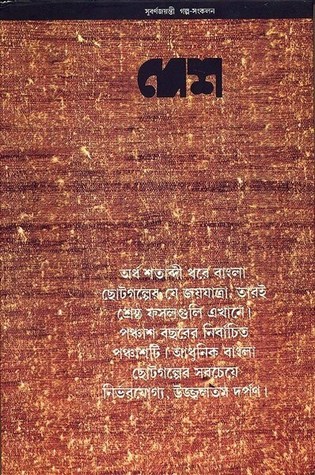 সুবর্ণজয়ন্তী গল্প-সংকলন
দেশ
অর্ধ শতাব্দী ধরে বাংলা
ছোটগল্পের যে জয়যাত্রা, তারই
শ্রেষ্ঠ ফসলগুলি এখানে।
পঞ্চাশ বছরের নির্বাচিত
পঞ্চাশটি। আধুনিক বাংলা
ছোটগল্পের সবচেয়ে
নির্ভরযোগ্য, উজ্জ্বলতম দর্পণ।